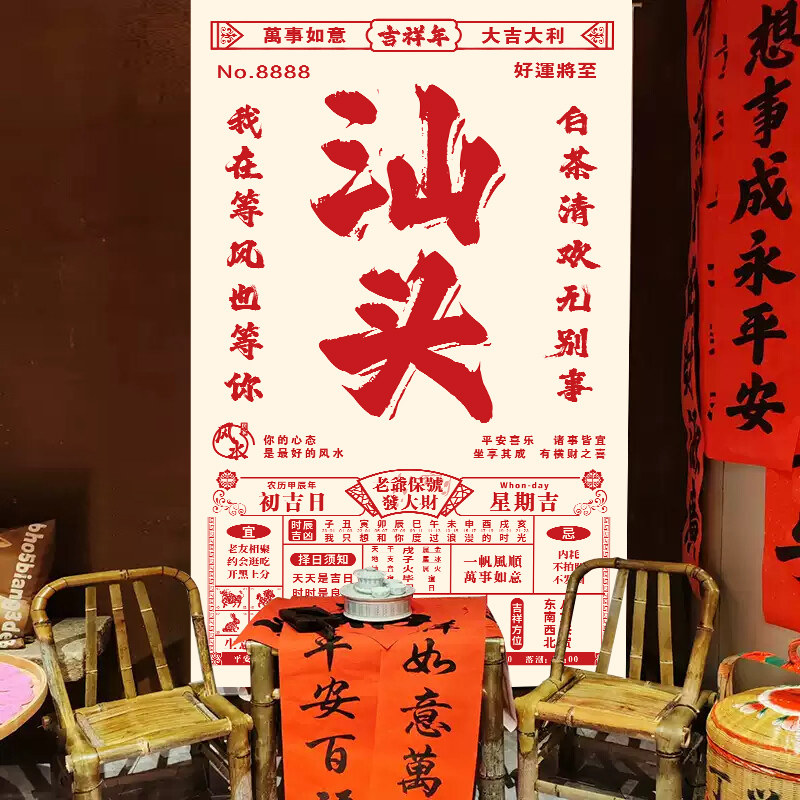 萬事如意
吉祥年
大吉大利
No.8888
好運將至
汕头
我在等风也等你
白茶清欢无别事
风水
你的心态
是最好的风水
平安喜乐 诸事皆宜
坐享其成 有横财之喜
农历甲辰年
初吉日
老爺保號
發大財
Whon-day
星期吉
宜
老友相聚
约会逛吃
开黑上分
时辰
吉凶
子丑寅卯辰巳午未申酉戌亥
我只想和你度过浪漫的时光
择日须知
天天是吉日
时时是良
一帆風順
萬事如意
吉祥方位
东
南
西
北
忌
内耗
不拍照
想事成永平安
平安百
如意萬